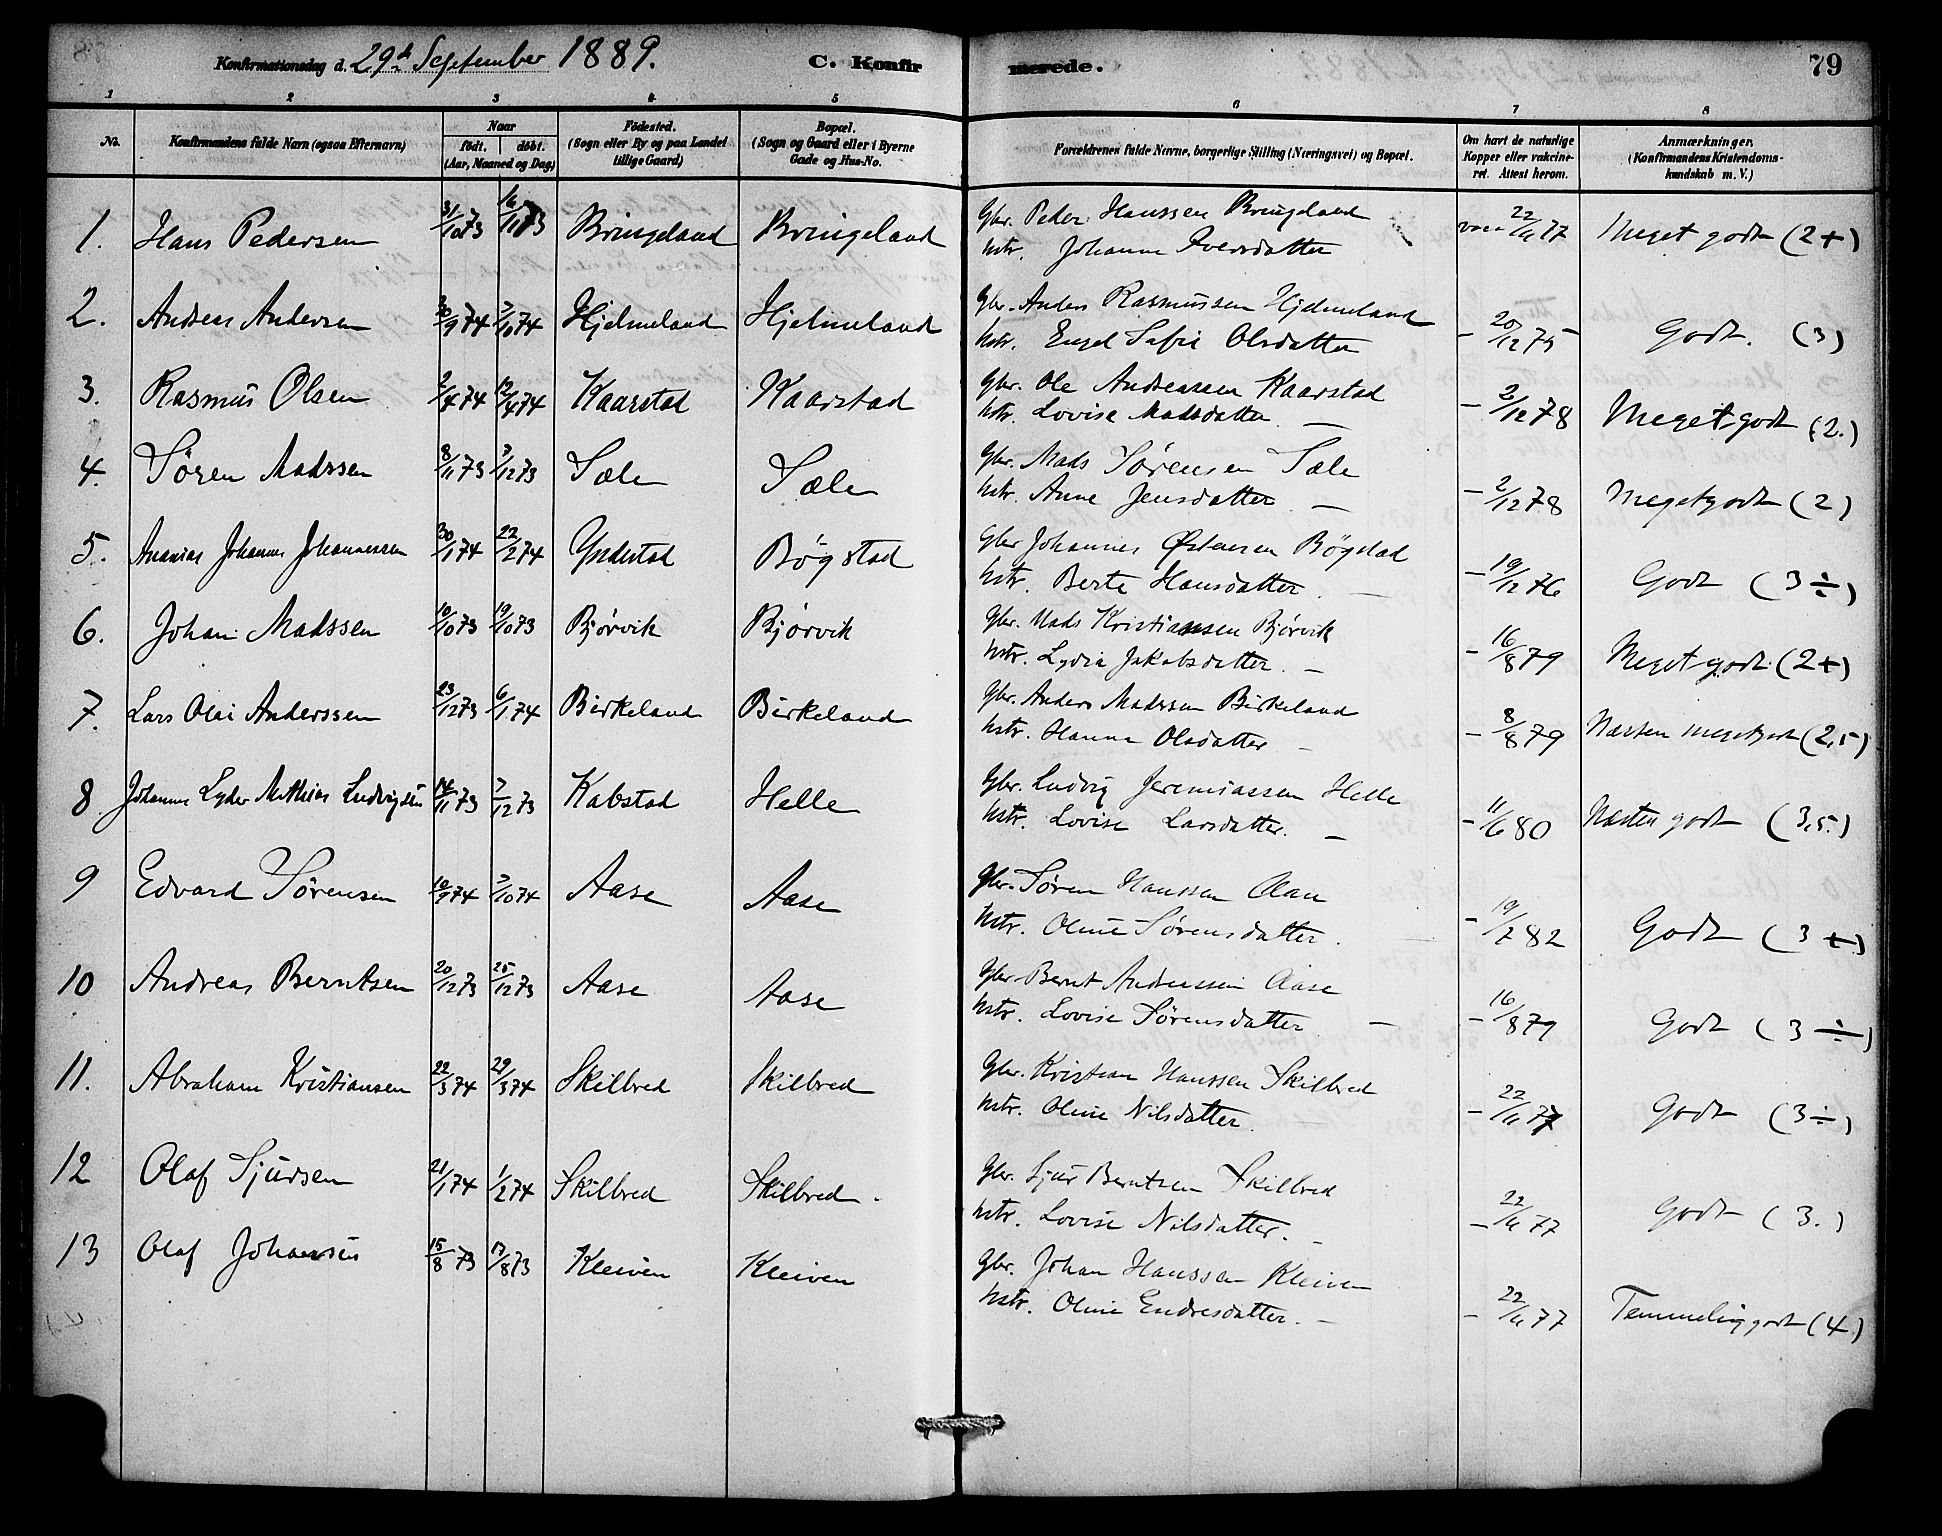 Konfirmationsdag d. 29de September 1889. C. Konfirmerede. 79
1 2 3 4 5 6 7 8
No. Konfirmandens fulde Navn (ogsaa Efternavn) Naar födt. döbt. (Aar, Maaned og Dag) Födested. (Sogn eller By og paa Landet tillige Gaard) Bopæl. (Sogn og Gaard eller i Byerne Gade og Hus-No. Forældrenes fulde Navne, borgerlige Stilling (Næringsvei) og Bopæl. Om havt de naturlige Kopper eller vakcineret. Attest herom. Anmærkninger. (Konfirmandens Kristendomskundskab m. V.)
1. Hans Pedersen 31/10 73 16/11 73 Bringeland Bringeland Gbr. Peder Hanssen Bringeland
hstr. Johanne Iversdatter vacc 22/11 77 Meget godt (2+)
2. Andreas Andersen 30/9 74 7/10 74 Hjelmeland Hjelmeland Gbr. Anders Rasmussen Hjelmeland
hstr. Engel Sofie Olsdatter - 20/12 75 Godt. (3)
3. Rasmus Olsen 2/4 74 12/4 74 Kaarstad Kaarstad Gbr. Ole Andreassen Kaarstad
hstr. Lovise Madsdatter — - 2/12 78 Meget godt (2.)
4. Sören Madssen 8/11 73 7/12 73 Sæle Sæle Gbr. Mads Sörensen Sæle
hstr. Anne Jensdatter — - 2/12 78 Megetgodt (2)
5. Ananias Johannes Johannessen 30/1 74 22/2 74 Yndestad Bögstad Gbr Johannes Østensen Bögstad
hstr. Berte Hansdatter. — - 19/12 76 Godt (3÷)
6. Johan Madssen 10/10 73 19/10 73 Bjørvik Bjørvik Gbr. Mads Kristiansen Bjørvik
hstr. Lydia Jakobsdatter. — - 16/8 79 Meget godt (2+)
7. Lars Olai Anderssen 23/12 73 6/1 74 Birkeland Birkeland Gbr. Anders Madssen Birkeland
hstr. Hanna Olsdatter — - 8/8 79 Næsten megetgodt (2,5)
8 Johannes Lyder Mathias Ludvigsen 14/11 73 7/12 73 Kabstad Helle Gbr. Ludvig Jeremiassen Helle
hstr. Lovise Larsdatter. — - 11/6 80 Næsten godt (3,5.)
9 Edvard Sørensen 10/9 74 7/10 74 Aase Aase Gbr. Søren Hanssen Aase
hstr. Oline Sørensdatter. — - 19/7 82 Godt (3+)
10 Andreas Berntsen 20/12 73 25/12 73 Aase Aase Gbr. Bernt Anderssen Aase
hstr. Lovise Sørensdatter — - 16/8 79 Godt (3÷)
11. Abraham Kristiansen 22/3 74 29/3 74 Skilbred Skilbred Gbr. Kristian Hanssen Skilbred
hstr. Oline Nilsdatter. — - 22/11 77 Godt (3÷)
12 Olaf Sjursen 21/1 74 1/2 74 Skilbred Skilbred. Gbr. Sjur Berntsen Skilbred
hstr. Lovise Nilsdatter. — - 22/11 77 Godt (3.)
13 Olaf Johansen 15/8 73 17/8 73 Kleiven Kleiven Gbr. Johan Hanssen Kleiven
hstr. Oline Endresdatter. — - 22/11 77 Temmelig godt (4.)